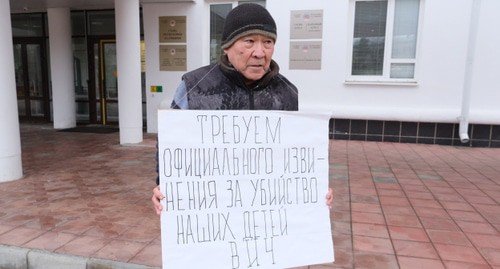 ТРЕБУЕМ
ОФИЦИАЛЬНОГО ИЗВИ-
НЕНИЯ ЗА УБИЙСТВО
НАШИХ ДЕТЕЙ
ВИЧ